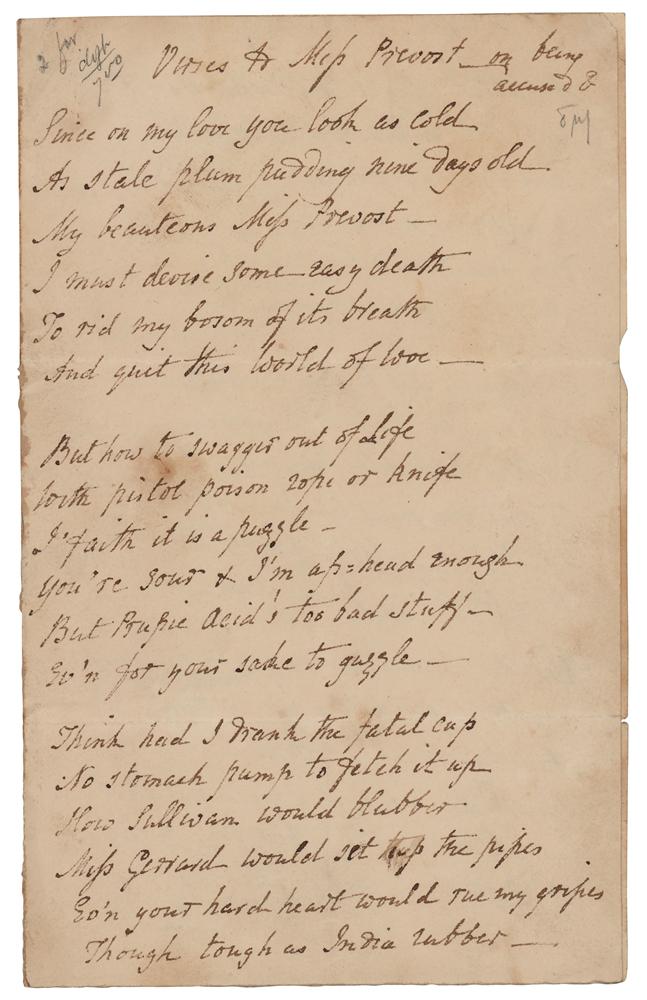 2 for
dish
750
Verses to Miss Prevost — on being
accused &
Since on my love you look as cold
As stale plum pudding nine days old
My beauteous Miss Prevost —
I must devise some easy death
To rid my bosom of its breath
And quit this World of Woe —
But how to swagger out of Life
With pistol poison rope or Knife
I'faith it is a puzzle —
You're sour & I'm ass=head enough
But Prussic Acid's too bad stuff —
Ev'n for your sake to guzzle —
Think had I drank the fatal cup
No stomach pump to fetch it up
How Sullivan would blubber
Miss Gerrard would set up the pipes
Ev'n your hard heart would rue my gripes
Though tough as India rubber —